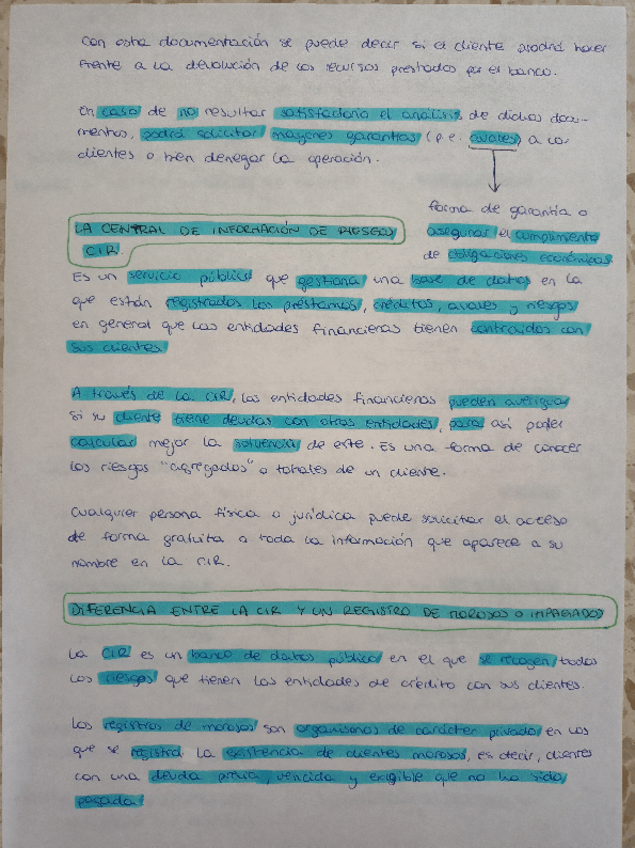 Con esta documentación se puede decir si el cliente podrá hacer
frente a la devolución de los recursos prestados por el banco.
En caso de no resultar satisfactorio el análisis de dichos docu-
mentos, podrá solicitar mayores garantías (p.e. avales) a los
clientes o bien denegar la operación.
forma de garantía o
asegurar el cumplimiento
de obligaciones económicas
LA CENTRAL DE INFORMACIÓN DE RIESGOS
CIR.
Es un servicio público que gestiona una base de datos en la
que están registrados los préstamos, créditos, avales y riesgos
en general que las entidades financieras tienen contraídos con
sus clientes.
A través de la CIR, las entidades financieras pueden averiguar
si su cliente tiene deudas con otras entidades, para así poder
calcular mejor la solvencia de este. Es una forma de conocer
los riesgos "agregados" o totales de un cliente.
Cualquier persona física o jurídica puede solicitar el acceso
de forma gratuita a toda la información que aparece a su
nombre en la CIR.
DIFERENCIA ENTRE LA CIR Y UN REGISTRO DE MOROSOS O IMPAGADOS
La CIR es un banco de datos público en el que se recogen todos
los riesgos que tienen las entidades de crédito con sus clientes.
Los registros de morosos son organismos de carácter privado en los
que se registra la existencia de clientes morosos, es decir, clientes
con una deuda previa, vencida y exigible que no ha sido
pagada.